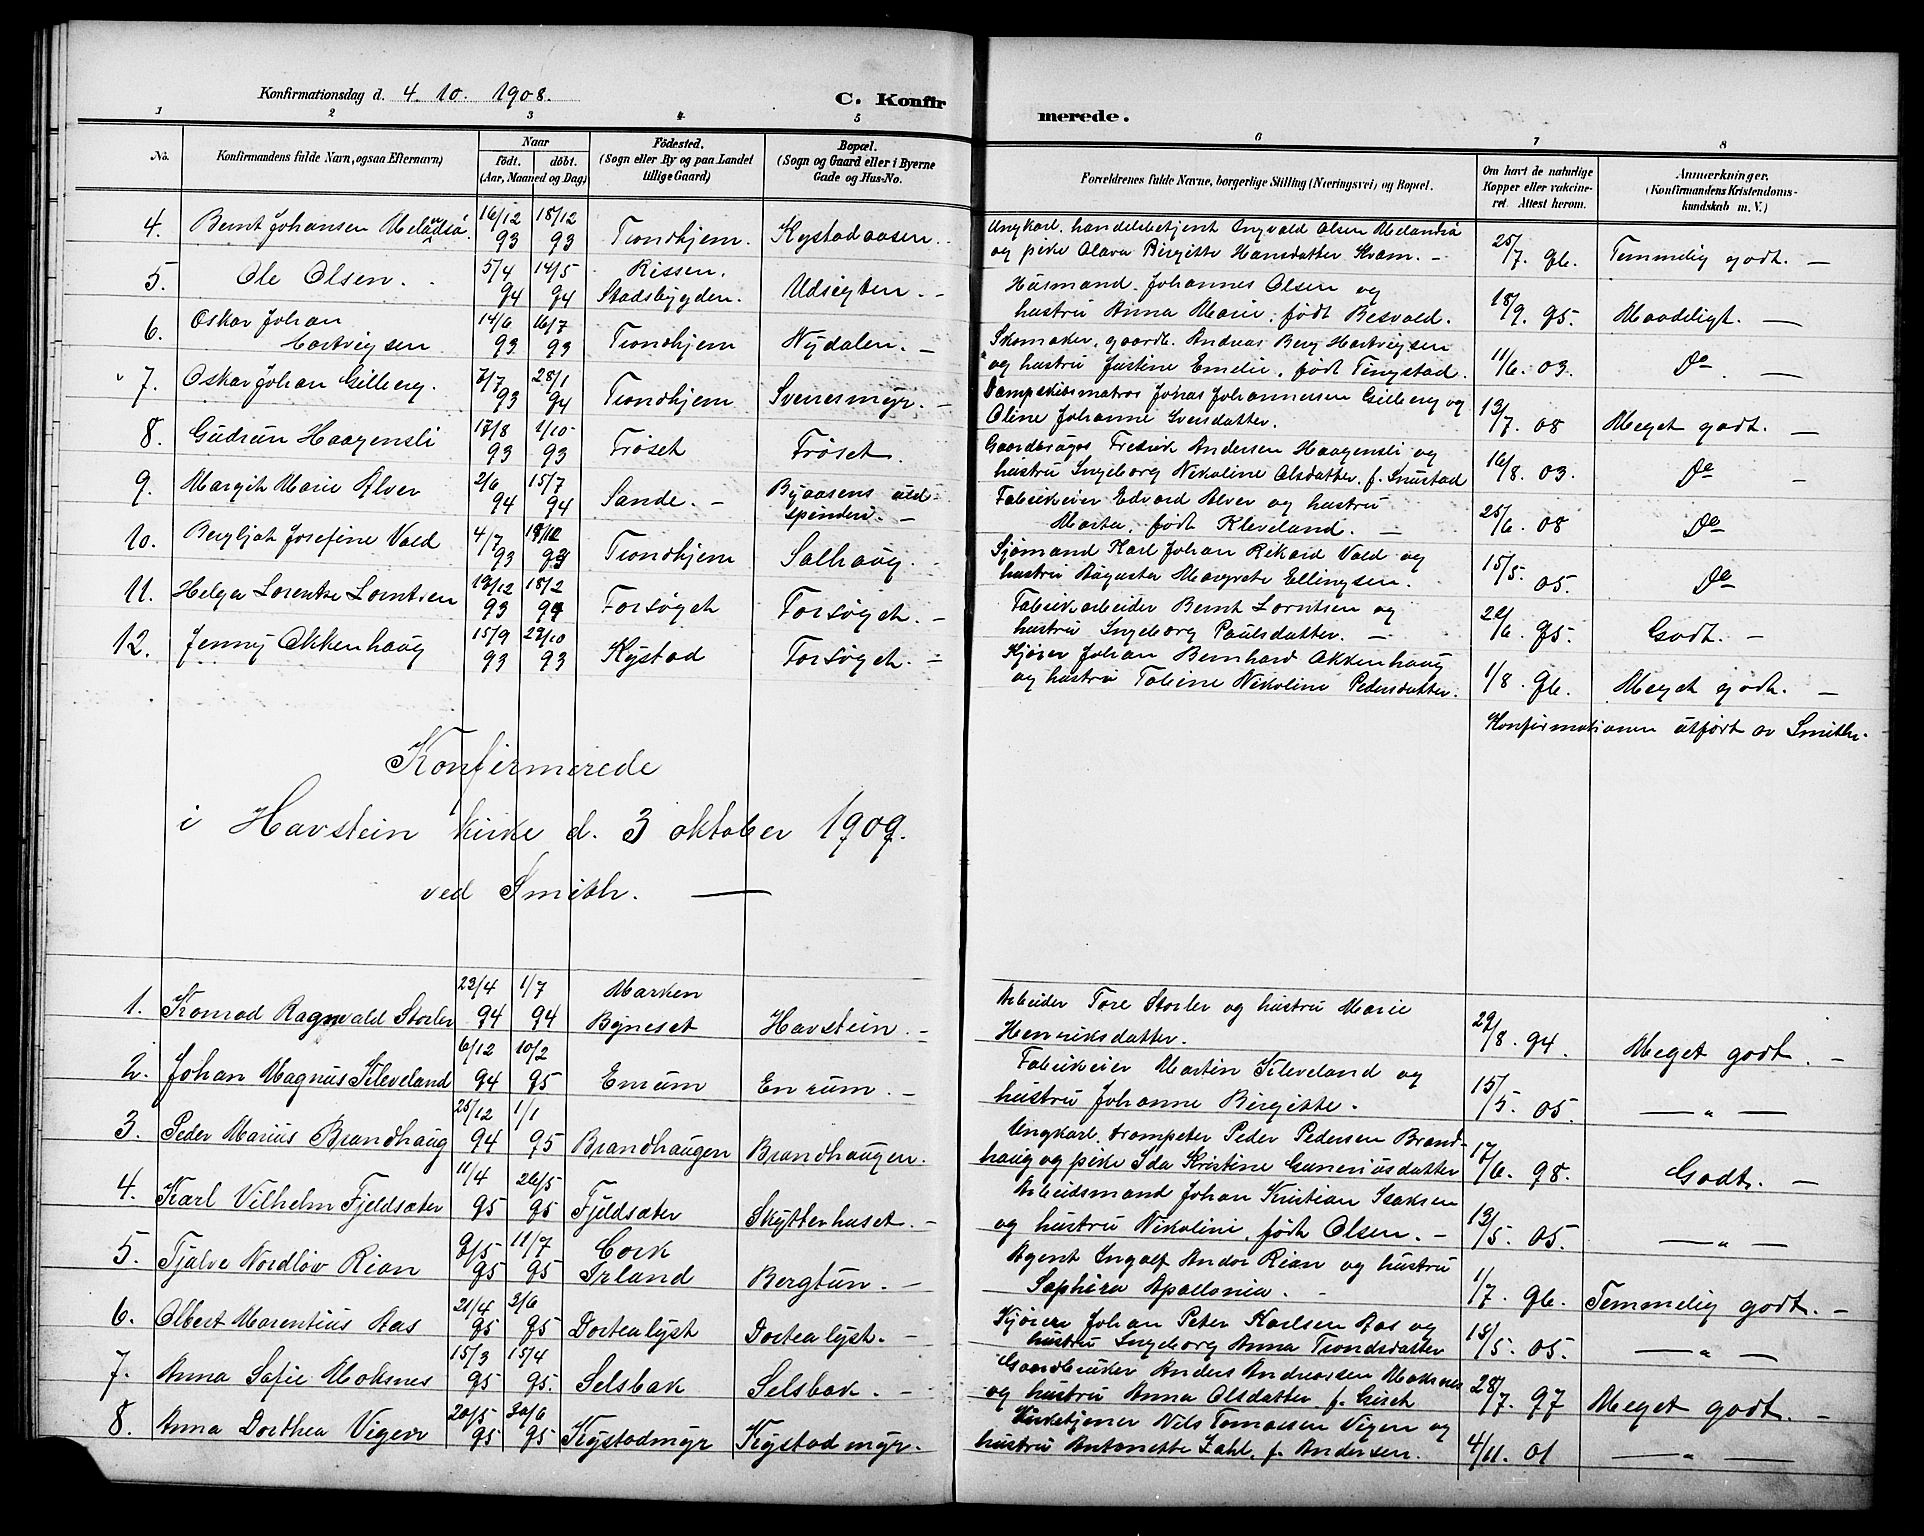 Konfirmationsdag d. 4. 10. 1908.
C. Konfirmerede.
1 2 3 4 5 6 7 8
No.
Konfirmandens fulde Navn, ogsaa Efternavn)
Naar
födt. döbt.
(Aar, Maaned og Dag)
Födested.
(Sogn eller By og paa Landet
tillige Gaard)
Bopæl.
(Sogn og Gaard eller i Byerne
Gade og Hus-No.
Forældrenes fulde Navne, borgerlige Stilling (Næringsvei) og Bopæl.
Om havt de naturlige
Kopper eller vakcine-
ret. Attest herom.
Anmærkninger.
(Konfirmandens Kristendoms-
kundskab m. V.)
4. Bernt Johansen Melandsö. 16/12 93 18/12 93 Trondhjem. Kystadaasen.
Ungkarl, handelsbetjent Ingvald Olsen Melandsö
og pike Olava Birgitte Hansdatter Kram. – 25/7. 96. Temmelig godt. –
5. Ole Olsen. 5/4 94 14/5 94 Rissen. Stadsbygden. Udsigten. –
Husmand Johannes Olsen og
hustru Anna Marie, født Besvald. 18/9. 95. Maadeligt. –
6. Oskar Johan Hartvigsen 14/6 93 16/7 93 Trondhjem Nydalen. –
Skomaker, gaardb. Andreas Berg Hartvigsen
og hustru Justine Emelie, født Tingstad. 11/6. 03. Do –
7. Oskar Johan Gilberg. 7/7 93 28/1 94 Trondhjem Svenesmyr. –
Dampskibsmatros Johas Johannesen Gilberg og
Oline Johanne Svensdatter. 13/7. 08 Meget godt. –
8. Gudrun Haagensli 17/8 93 1/10 93 Trøset Trøset.
Gaardbruger Fredrik Andersen Haagensli og
hustru Ingeborg Nikoline Olsdatter, f. Snustad 16/8. 03. Do –
9. Margit Marie Alver 2/6 94 15/7 94 Sande. – Byaasens uldspinderi. –
Fabrikeier Edvard Alver og hustru
Marta, født Kleveland. – 25/6. 08 Do
10. Bergljot Josefine Vold 4/7 93 93 Trondhjem Solhaug.
Sjømand Karl Johan Rikard Vold og
hustru Augusta Margrete Ellingsen. 15/5. 05. Do
11. Helga Lorentse Lorntsen 12/12 93 18/2 94 Forsøget Forsøget. –
Fabrikarbeider Bernt Lorntsen og
hustru Ingeborg Paulsdatter. – 22/6. 95. Godt. –
12. Jenny Okkenhaug 15/9 93 22/10 93 Kystad Forsøget. –
Kjører Johan Bernhard Okkenhaug
og hustru Tobine Nikoline Pedersdatter. 1/8. 96. Meget godt. –
Konfirmationen utført av Smith.
Konfirmerede
i Havstein kirke d. 3 oktober 1909.
ved Smith. –
1. Konrad Ragnvald Storler 22/4 94 1/7 94 Marken Bynesset Havstein. –
Arbeider Tore Storler og hustru Marie
Henriksdatter. 29/8. 94. Meget godt. –
2. Johan Magnus Kleveland 6/12 94 10/2 95 Enrum Enrum. –
Fabrikeier Martin Kleveland og
hustru Johanne Birgitte. 15/5. 05. – " –
3. Peder Marius Brandhaug 25/12 94 1/1 95 Brandhaugen Brandhaugen.
Ungkarl, trompeter Peder Pedersen Brand-
haug og pike Ida Kristine Guneriusdatter 17/6. 98. Godt. –
4. Karl Vilhelm Fjeldsæter 11/4 95 26/5 95 Fjeldsæter Skytterhuset. –
Arbeidsmand Johan Kristian Isaksen
og hustru Nikoline, født Olsen. – 13/5. 05. – " –
5. Tjalve Nordløv Rian 9/5 95 11/7 95 Cork Irland Bergtun. –
Agent Ingolf Andor Rian og hustru
Saphira Apollonia. – 1/7. 96. Temmelig godt. –
6. Olbert Marentius Aas 21/4 95 3/6 95 Dortealyst Dortealyst. –
Kjører Johan Peter Karlsen Aas og
hustru Ingeborg Anna Trondsdatter 15/5. 05. – " –
7. Anna Sofie Moksnes 15/3 95 15/4 95. Selsbak Selsbak. –
Gaardbruker Anders Andreasen Moksnes
og hustru Anna Olsdatter f. 28/7. 97 Meget godt. –
8. Anna Dorthea Vigen 20/5 95 30/6 95 Kystadmyr Kystadmyr.
Kirketjener Nils Tomassen Vigen og
hustru Antonette Zahl, f. Andersen. 4/11. 01 – " –